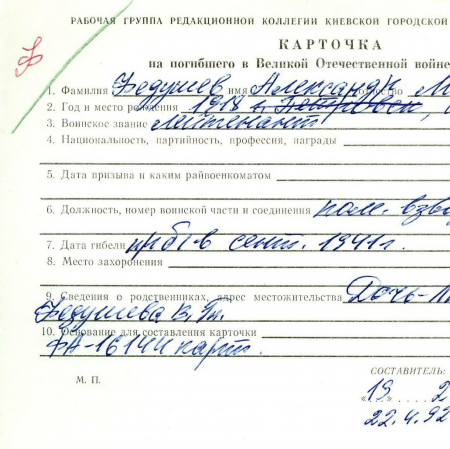 Ф
РАБОЧАЯ ГРУППА РЕДАКЦИОННОЙ КОЛЛЕГИИ КИЕВСКОЙ ГОРОДСКОЙ
КАРТОЧКА
на погибшего в Великой Отечественной войне
1. Фамилия Федушев имя Александр
2. Год и место рождения 1918 г.
3. Воинское звание Лейтенант
4. Национальность, партийность, профессия, награды
5. Дата призыва и каким райвоенкоматом
6. Должность, номер воинской части и соединения взво
7. Дата гибели в сент. 1941 г.
8. Место захоронения
9. Сведения о родственниках, адрес местожительства Дочь-
Федушева В.
10. Основание для составления карточки
ФА-16144 карт.
СОСТАВИТЕЛЬ:
М. П.
«19 2
22.4.92